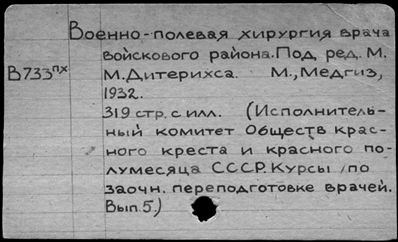 Военно-полевая хирургия врача
войскового района. Под ред. М.
В733пх
М. Дитерихса. М., Медгиз,
1932.
319 стр. с илл. (Исполнитель-
ный комитет Обществ крас-
ного креста и красного по-
лумесяца СССР. Курсы по
заочн. переподготовке врачей.
Вып. 5)